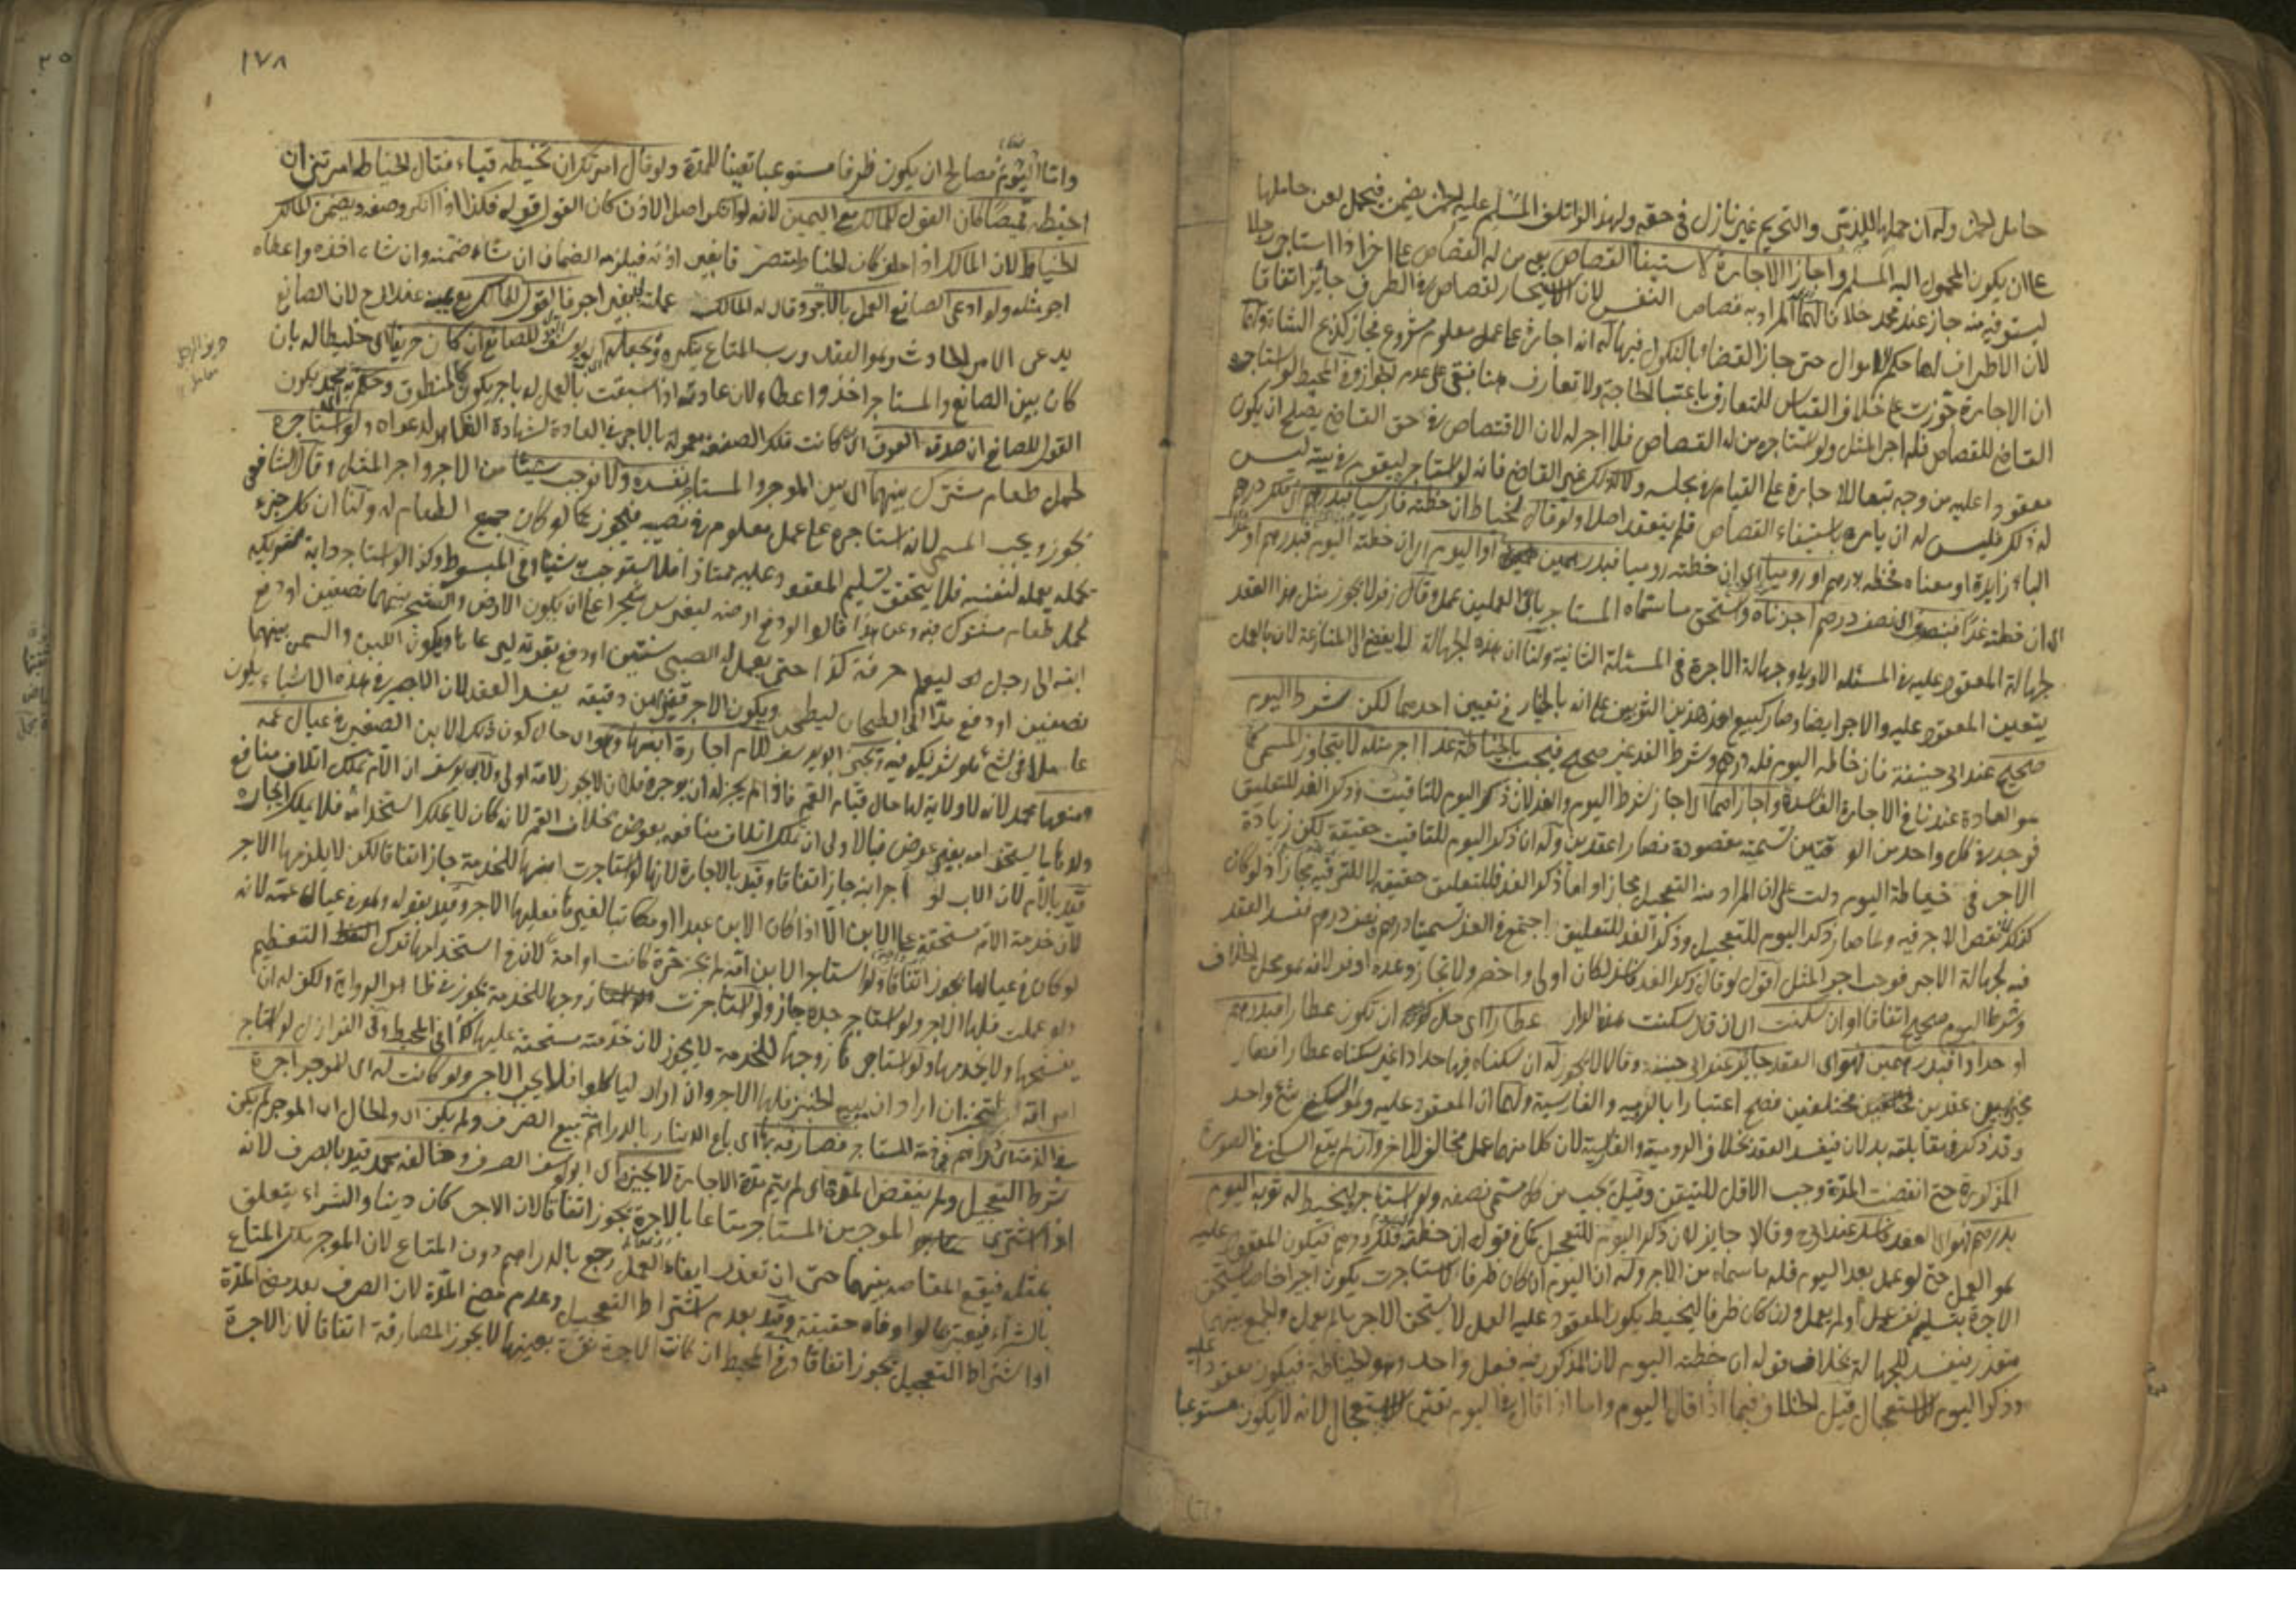 حامل الخمر وله ان حملها للذمى والتحريم غير نازل فى حقه ولهذا لو اتلف المسلم عليه الخمر يضمن فيحمل لعن حاملها
على ان يكون المحمول اليه المسلم واجاز الاجارة لاستيفاء القصاص يعنى من له القصاص على اخر اذا استاجر رجلا
ليستوفيه منه جاز عند محمد خلافا لهما المراد به قصاص النفس لان الاستيجار لقصاص فى الطرف جائز اتفاقا
لان الاطراف لها حكم الاموال حتى جاز القضاء بالنكول فيها له انه اجارة على عمل معلوم مشروع فجاز كذبح الشاة ولهما
ان الاجارة جوزت على خلاف القياس للتعارف باعتبار الحاجة ولا تعارف هنا فبقى على عدم الجواز وفى المحيط لو استاجره
القاضى للقصاص فله اجر المثل ولو استاجره من له القصاص فلا اجر له لان الاقتصاص فى حق القاضى يصلح ان يكون
معقودا عليه من وجه تبعا للاجارة على القيام فى مجلسه ولا كذلك غير القاضى فانه لو استاجر ليقوم فى بيته ليس
له ذلك فليس له ان يامره باستيفاء القصاص فلم ينعقد اصلا ولو قال لخياط ان خطته فارسيا فبدرهم
الباء زايدة او معناه فخطه بدرهم او روميا اى ان خطته روميا فبدرهمين او اليوم اى ان خطته اليوم فبدرهم او غدا
اى ان خطته غدا فبنصف اى نصف درهم اجزناه ويستحق ما سماه المستاجر باى العملين عمل وقال زفر لا يجوز مثل هذا العقد
لجهالة المعقود عليه فى المسئلة الاولى وجهالة الاجرة فى المسئلة الثانية ولنا ان هذه الجهالة لا يفضى الى المنازعة لان بالعمل
يتعين المعقود عليه والاجر ايضا وصار كبيع احد هذين الثوبين على انه بالخيار فى تعيين احدهما لكن شرط اليوم
صحيح عند ابى حنيفة فان خاطه اليوم فله درهم وشرط الغد غير صحيح فيجب بالخياطة غدا اجر مثله لا يتجاوز المسمى كما
هو العادة عندنا فى الاجارة الفاسدة واجازاهما اى اجازا شرط اليوم والغد لان ذكر اليوم للتاقيت وذكر الغد للتعليق
فوجد فى كل واحد من الوقتين تسمية مقصودة فصارا عقدين وله ان ذكر اليوم للتاقيت حقيقة لكن زيادة
الاجر فى خياطة اليوم دلت على ان المراد منه التعجيل مجازا واما ذكر الغد فللتعليق حقيقة لا للترفيه مجازا اذ لو كان
كذلك لنقص الاجر فيه ولما صار ذكر اليوم للتعجيل وذكر الغد للتعليق اجتمع فى الغد تسميتا درهم ونصف درهم ففسد العقد
فيه لجهالة الاجر فوجب اجر المثل اقول لو قال ذكر الغد لكان اولى واخصر
وشرط اليوم صحيح اتفاقا او ان سكنت اى ان قال سكنت هذه الدار عطارا اى حال ان تكون عطارا فبدرهم
او حدادا فبدرهمين فهو اى العقد جائز عند ابى حنيفة وقالا لا يجوز له ان سكناه فيها حدادا غير سكناه عطارا فصار
تخييرا بين عقدين مختلفين فصح اعتبارا بالرومية والفارسية ولهما ان المعقود عليه وهو السكنى شئ واحد
وقد ذكر فى مقابلته بدلان فيفسد العقد بخلاف الرومية والفارسية لان كلا منهما عمل مخالف للاخر وان لم يقع السكنى فى الصورة
المذكورة حتى انقضت المدة وجب الاقل للتيقن وقيل يجب من كل مسمى نصفه ولو استاجره ليخيط له ثوبه اليوم
بدرهم فهو اى العقد فاسد عند ابى ح وقالا جايز لان ذكر اليوم للتعجيل كما فى قوله ان خطته فلك درهم فيكون المعقود عليه
هو العمل حتى لو عمل بعد اليوم فله ما سماه من الاجر وله ان اليوم ان كان ظرفا لاستاجرت يكون اجيرا خاصا يستحق
الاجرة بتسليم نفسه عمل او لم يعمل وان كان ظرفا ليخيط يكون المعقود عليه العمل لا يستحق الاجر ما لم يعمل والجمع بينهما
متعذر فيفسد للجهالة بخلاف قوله ان خطته اليوم لان المذكور فيه فعل واحد وهو الخياطة فيكون معقودا عليه
وذكر اليوم للاستعجال قيل الخلاف فيما اذا قال اليوم واما اذا قال فى اليوم تعين للاستعجال لانه لا يكون مستوعبا
١٧٨
واما اليوم فصالح ان يكون ظرفا مستوعبا تعيينا للمدة ولو قال امرتك ان تخيطه قباء فقال الخياط امرتنى ان
اخيطه قميصا كان القول للمالك مع اليمين لانه لو انكر اصل الاذن كان القول قوله فكذا اذا انكر وصفه ويضمن المالك
الخياط لان المالك اذا حلف كان الخياط متصرفا بغير اذنه فيلزمه الضمان ان شاء ضمنه وان شاء اخذه واعطاه
اجر مثله ولو ادعى الصانع العمل بالاجر وقال له المالك عملت بغير اجر فالقول للمالك مع يمينه عند ابى ح لان الصانع
يدعى الامر الحادث وهو العقد ورب المتاع ينكره وجعله ابو يوسف للصانع ان كان حريفا اى خليطا له بان
كان بين الصانع والمستاجر اخذ واعطاء لان عادته اذا سبقت بالعمل له باجر يكون كالمنطوق وحكم محمد بكون
القول للصانع ان صدقه العرف اى ان كانت تلك الصنعة معمولة بالاجر فى العادة لشهادة الظاهر لدعواه ولو استاجره
لحمل طعام مشترك بينهما اى بين الموجر والمستاجر نفسده ولا نوجب شيئا من الاجر واجر المثل وقال الشافعى
يجوز ويجب المسمى لانه استاجره على عمل معلوم فى نصيبه فيجوز كما لو كان جميع الطعام له ولنا ان كل جزء
يحمله يعمله لنفسه فلا يتحقق تسليم المعقود عليه ممتازا فلا يستوجب شيئا وفى المبسوط وكذا لو استاجر دابة
لحمل طعام مشترك فيه وعن هذا قالوا لو دفع ارضه ليغرس شجرا على ان يكون الارض والشجر بينهما نصفين او دفع
ابنه الى رجل ليعلمه حرفة كذا حتى يعمل له الصبى سنتين او دفع بقرته ليرعاها ويكون اللبن والسمن بينهما
نصفين او دفع برا الى الطحان ليطحن ويكون الاجر قفيزا من دقيقه يفسد العقد لان الاجير فى هذه الاشياء يكون
عاملا فى شئ هو شريك فيه ويجيز ابو يوسف للام اجارة ابنها وهو اى حال كون ذلك الابن الصغير فى عيال عمه
ومنعها محمد لانه لا ولاية لها حال قيام العم فاذا لم يجز له ان يوجره فلان لا يجوز لامه اولى ولابى يوسف ان الام تملك اتلاف منافع
ولدها بالاستخدام بغير عوض فبالاولى ان تملك اتلاف منافعه بعوض بخلاف العم لانه كان لا يملك استخدامه فلا يملك ايجاره
قيد بالام لان الاب لو اجر ابنه جاز اتفاقا وقيد بالاجارة لانها لو استاجرت ابنها للخدمة جاز اتفاقا لكن لا يلزمها الاجر
لان خدمة الام مستحقة على الابن الا اذا كان الابن عبدا او مكاتبا لغيرها فعليها الاجر وقيد بقوله وهو فى عيال عمه لانه
لو كان فى عيالها يجوز اتفاقا ولو استاجر الابن امه لم يجز حرة كانت او امة لان فى استخدامها ترك التعظيم
ولو عملت فلها الاجر ولو استاجر جده جاز ولو استاجرت زوجها للخدمة يجوز فى ظاهر الرواية ولكن له ان
يفسخها ولا يخدمها ولو استاجرها زوجها للخدمة لا يجوز لان خدمته مستحقة عليها كذا فى المحيط وفى النوازل لو استاجر
امراته لتخبز ان اراد ان يبيع الخبز فلها الاجر وان اراد لياكلوا فلا يجب الاجر ولو كانت له اى للموجر اجرة
فى الذمة اى دراهم فى ذمة المستاجر فصارفه بها اى باع الدينار بالدراهم بيع الصرف ولم يكن اى والحال ان الموجر لم يكن
شرط التعجيل ولم ينقض المدة اى لم يتم مدة الاجارة لا يجيزه اى ابو يوسف الصرف وخالفه محمد قيد بالصرف لانه
اذا اشترى الموجر من المستاجر متاعا بالاجرة يجوز اتفاقا لان الاجر كان دينا والشراء يتعلق
بمثله فيقع المقاصة بينهما حتى ان تعذر ايفاء العمل رجع بالدراهم دون المتاع لان الموجر ملك المتاع
بالشراء فيعتبر كما لو اوفاه حقيقة وقيد بعدم اشتراط التعجيل وعدم مضى المدة لان الصرف بعد مضى المدة
او اشتراط التعجيل يجوز اتفاقا وفى المحيط ان كانت الاجرة نقرة بعينها لا يجوز المصارفة اتفاقا لان الاجرة